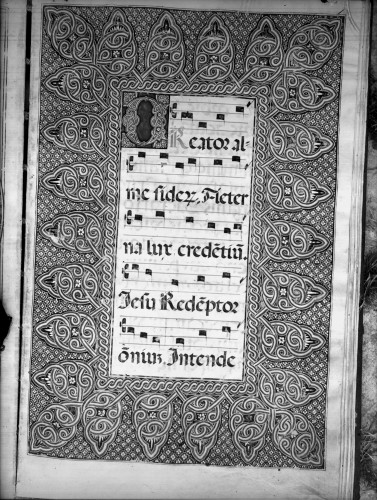 CReator al-
me siderꝝ. Aeter
na lux credētiū.
Jesu Redēptor
ōniuꝫ. Intende